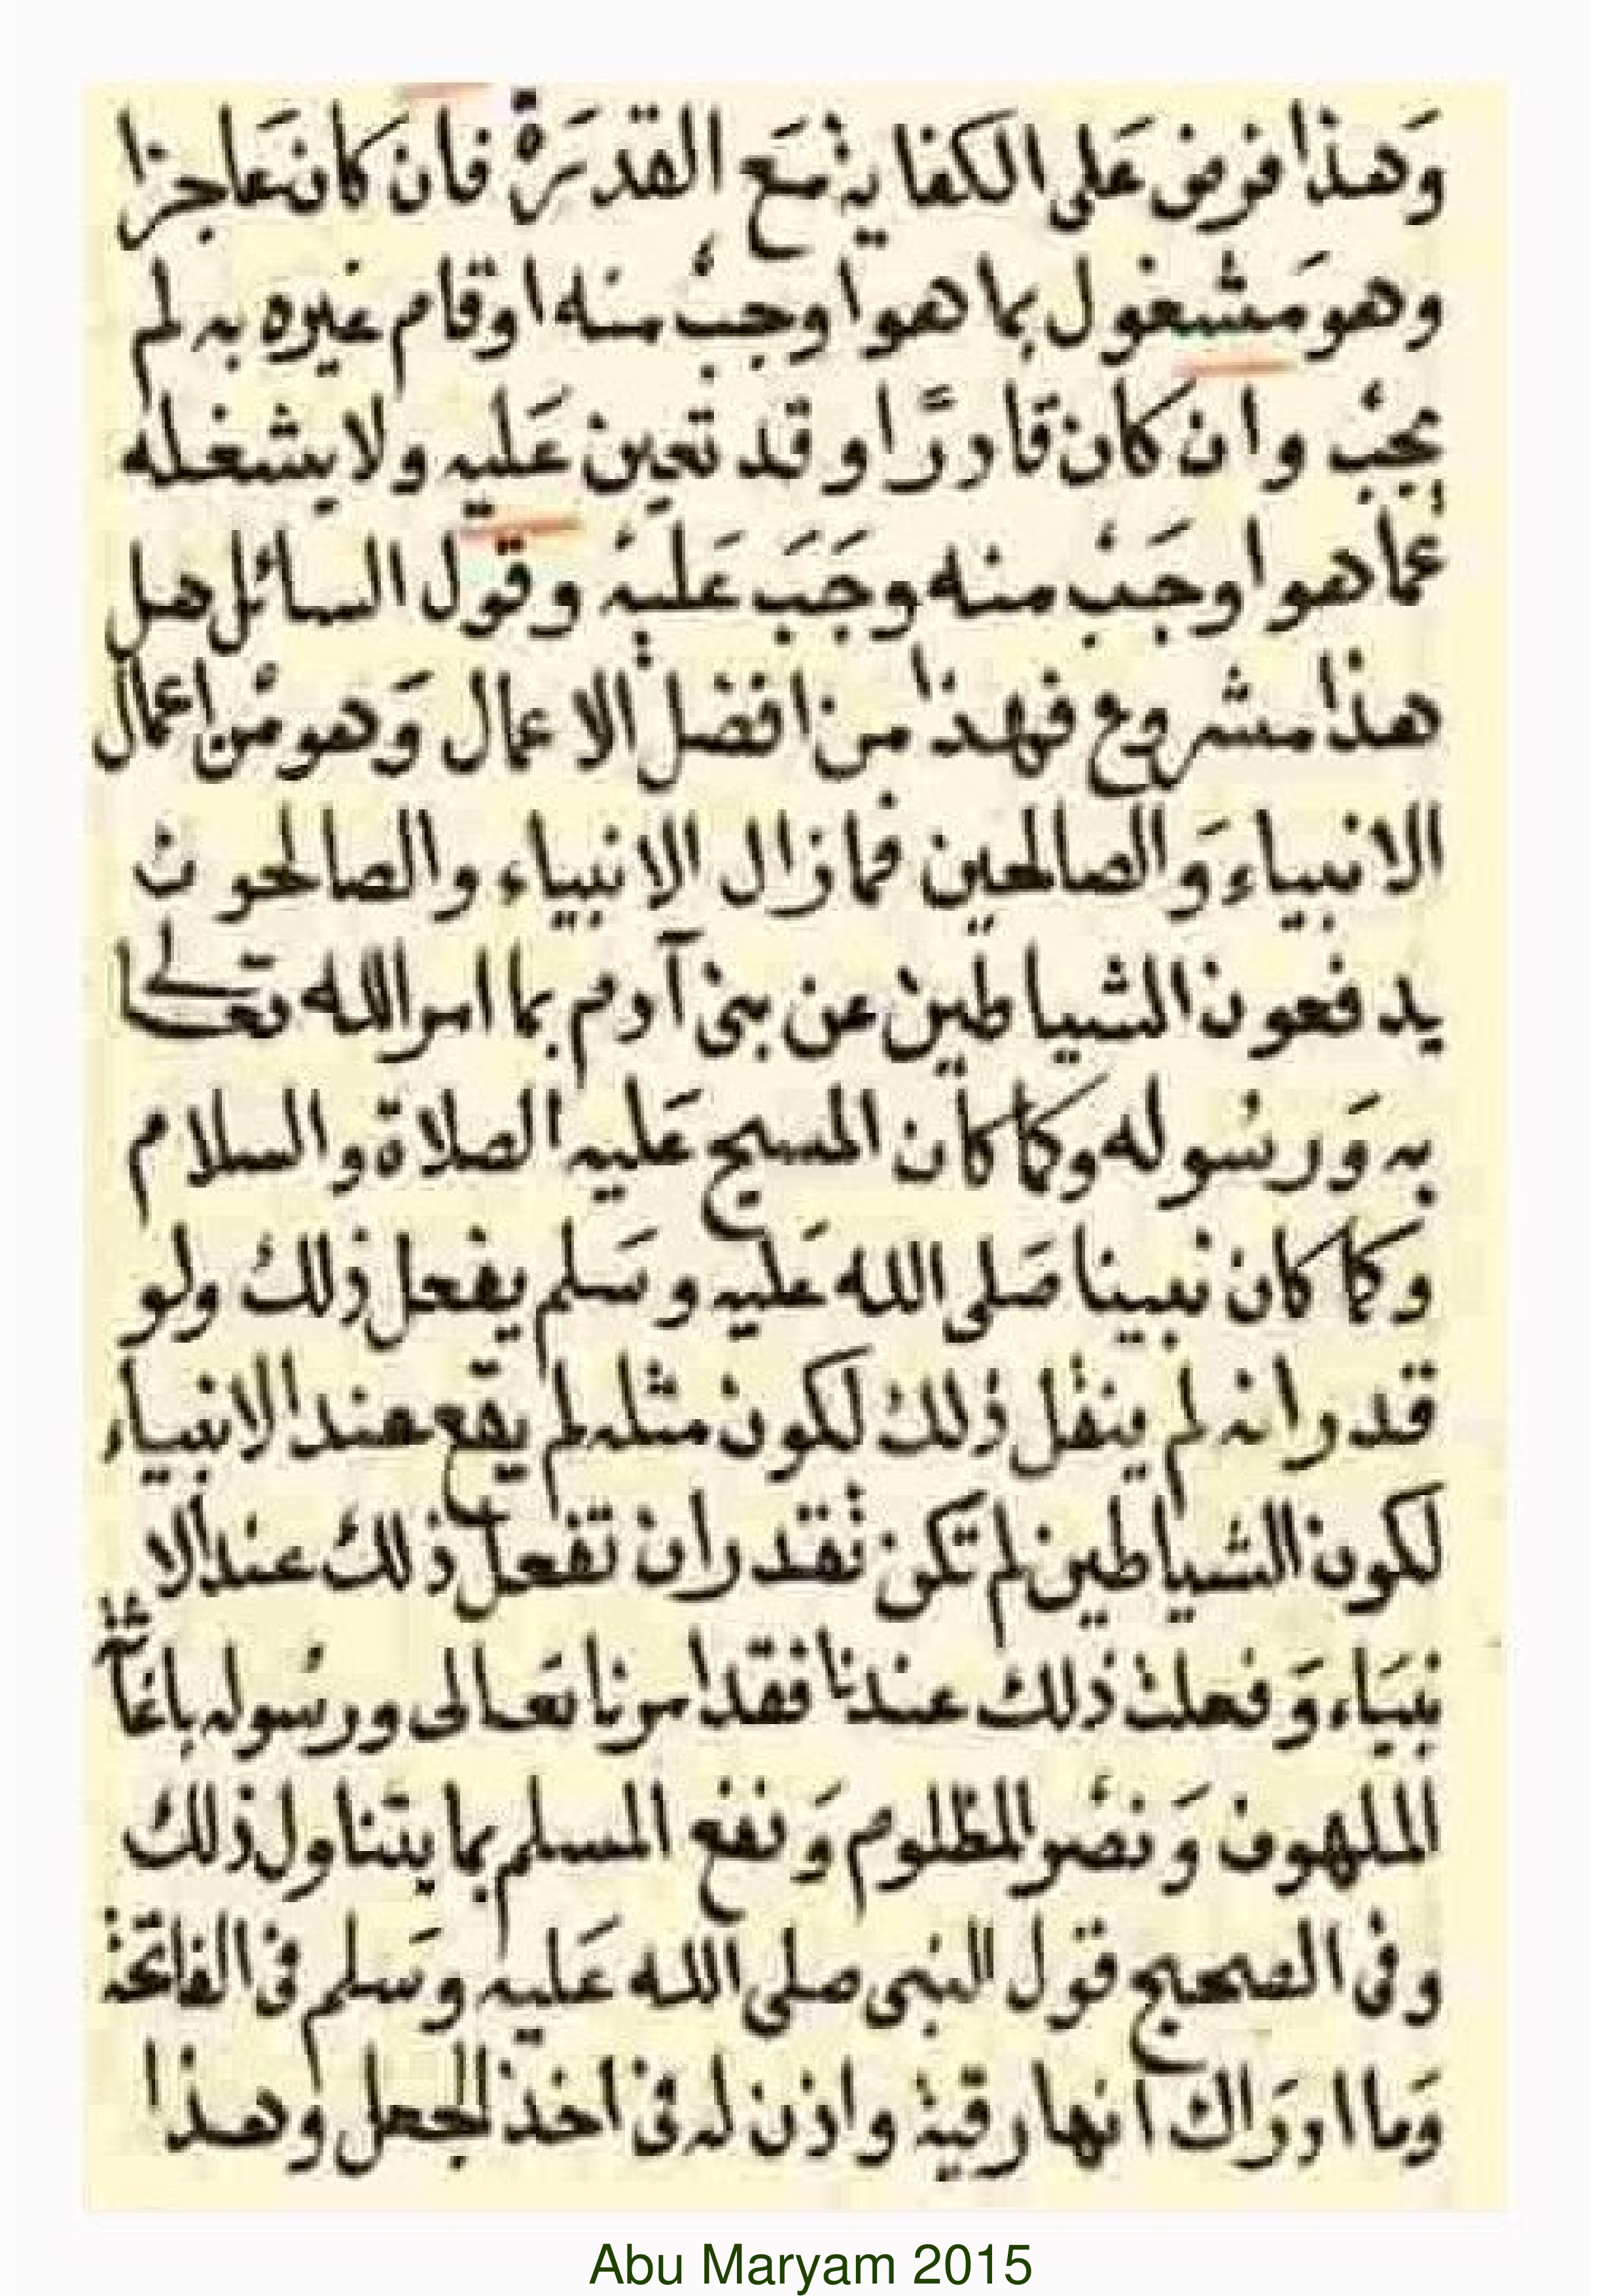 وَهذا فرض عَلى الكفاية مَع القدرَة فان كان عَاجزا
وهو مَشغول بما هو اوجبُ منه او قام غيره به لم
يجبُ وان كان قادرًا وقد تعين عَليه ولا يشغله
عما هو اوجَبُ منه وجَبَ عَليه وقول السائل هل
هذا مشروع فهذا من افضل الاعمال وَهو من اعمال
الانبياء وَالصالحين فما زال الانبياء والصالحون
يدفعون الشياطين عن بنى آدم بما امر الله تعالى
به وَرسُوله وكما كان المسيح عَليه الصلاة والسلام
وكما كان نبينا صَلى الله عَليه وسَلم يفعل ذلك ولو
قدر انه لم ينقل ذلك لكون مثله لم يقع عند الانبياء
لكون الشياطين لم تكن تقدر ان تفعل ذلك عند الا
نبيَاء وَفعلت ذلك عندنا فقد امرنا تعَالى ورسُوله باغاثة
الملهوف وَنصُر المظلوم وَنفع المسلم بما يتناول ذلك
وفى الصحيح قول النبى صلى الله عَليه وسَلم فى الفاتحة
وَما ادرَاك انها رقية واذن له فى اخذ الجعل وهذا
Abu Maryam 2015